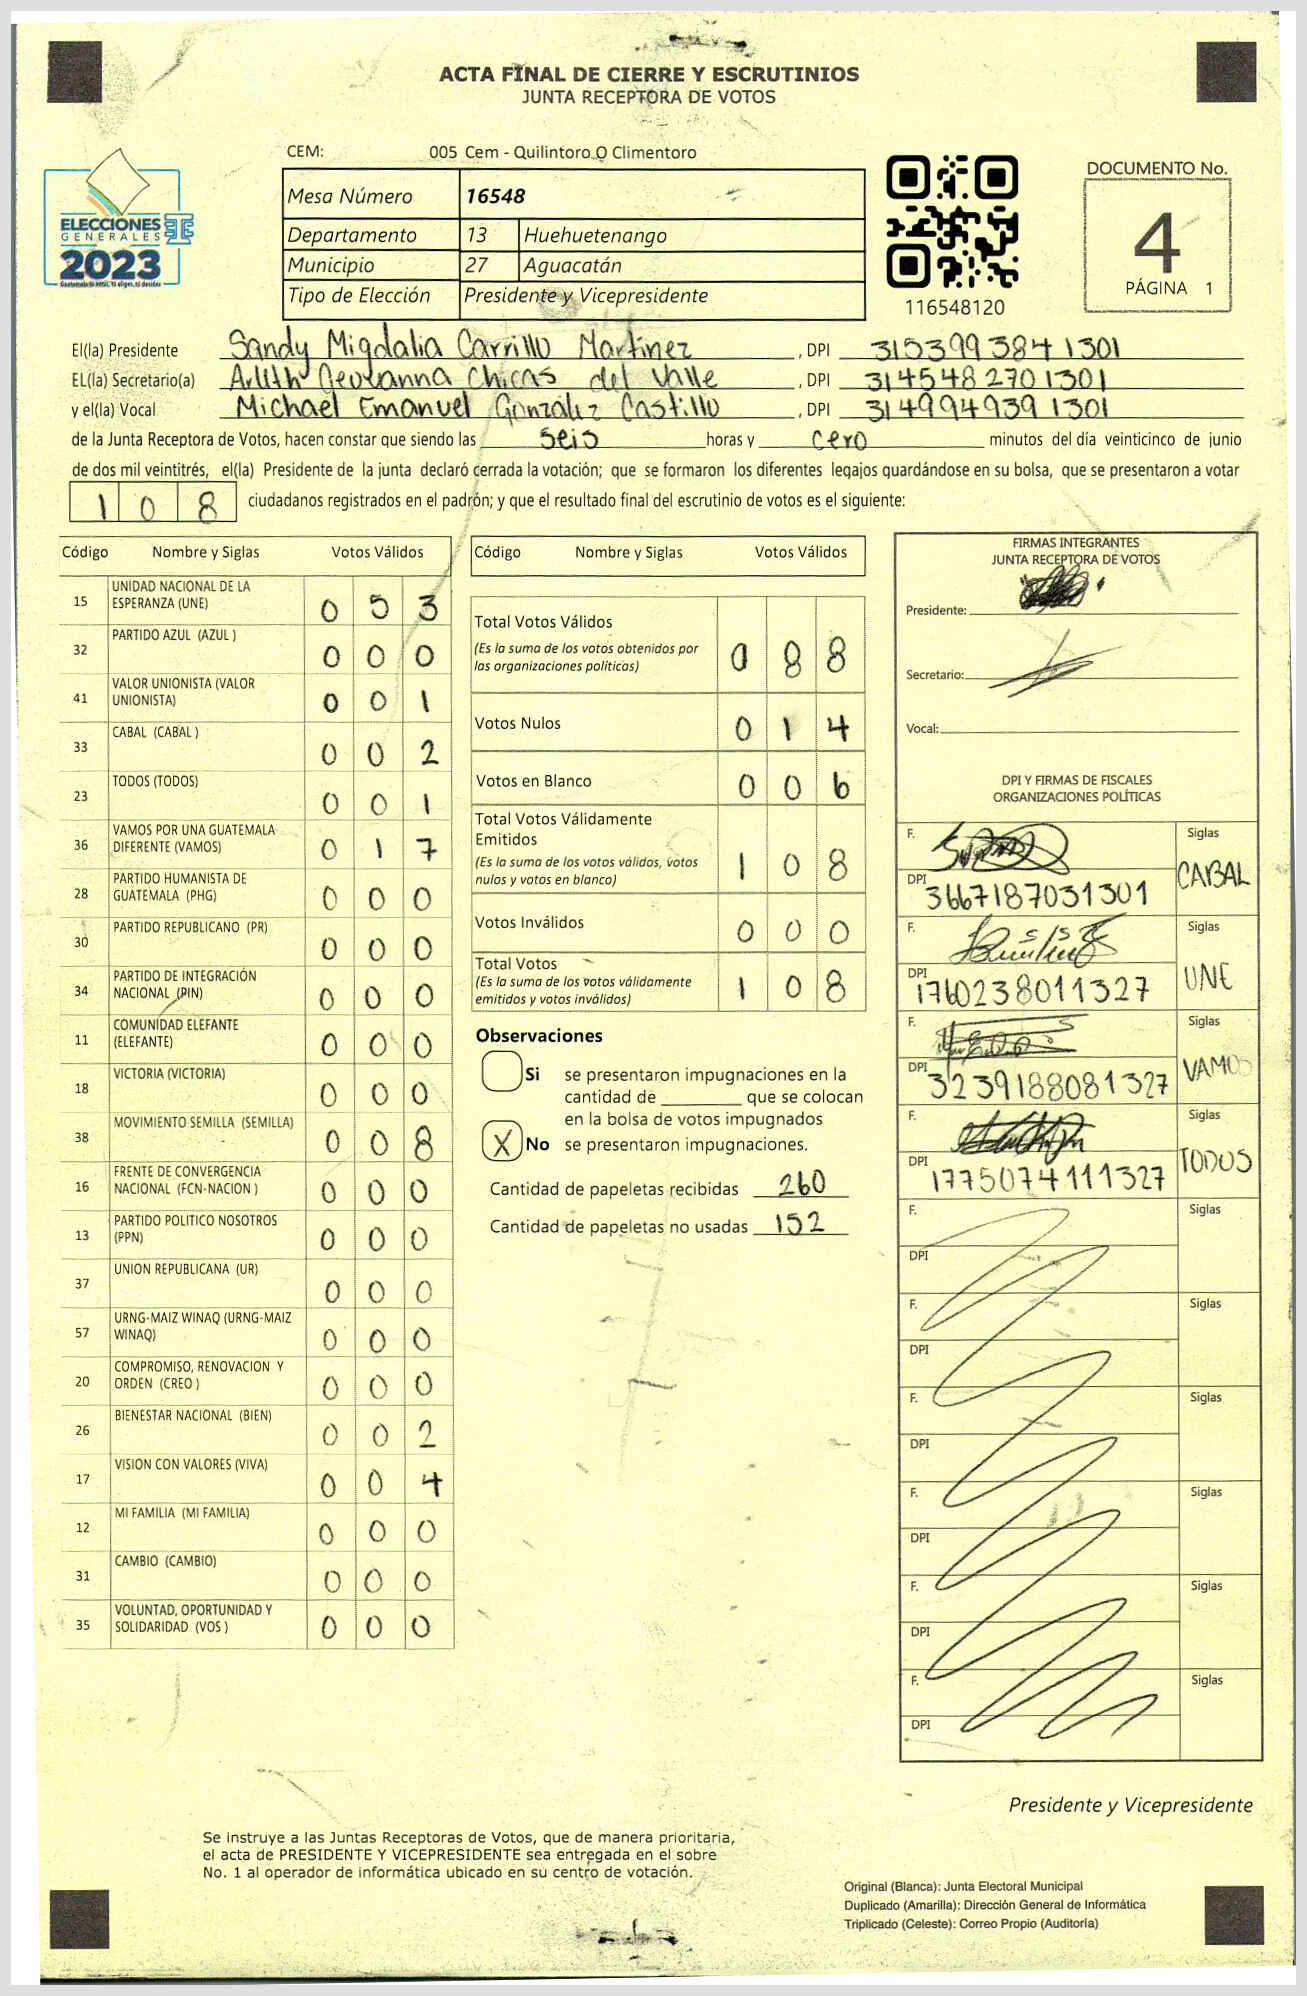 ACTA FINAL DE CIERRE Y ESCRUTINIOS
JUNTA RECEPTORA DE VOTOS
CEM: 005 Cem - Quilintoro O Climentoro
ELECCIONES
GENERALES
2023
Mesa Número 16548
Departamento 13 Huehuetenango
Municipio 27 Aguacatán
Tipo de Elección Presidente y Vicepresidente
116548120
DOCUMENTO No.
4
PÁGINA 1
El(la) Presidente Sandy Migdalia Carrillo Martinez, DPI 3153993841301
EL(la) Secretario(a) Chicas del Valle, DPI 3145482701301
y el(la) Vocal Michael Emanuel González Castillo, DPI 3149949391301
de la Junta Receptora de Votos, hacen constar que siendo las seis horas y cero minutos del día veinticinco de junio
de dos mil veintitrés, el(la) Presidente de la junta declaró cerrada la votación; que se formaron los diferentes legajos guardándose en su bolsa, que se presentaron a votar
108 ciudadanos registrados en el padrón; y que el resultado final del escrutinio de votos es el siguiente:
Código Nombre y Siglas Votos Válidos
15 UNIDAD NACIONAL DE LA ESPERANZA (UNE) 0 5 3
32 PARTIDO AZUL (AZUL ) 0 0 0
41 VALOR UNIONISTA (VALOR UNIONISTA) 0 0 1
33 CABAL (CABAL ) 0 0 2
23 TODOS (TODOS) 0 0 1
36 VAMOS POR UNA GUATEMALA DIFERENTE (VAMOS) 0 1 7
28 PARTIDO HUMANISTA DE GUATEMALA (PHG) 0 0 0
30 PARTIDO REPUBLICANO (PR) 0 0 0
34 PARTIDO DE INTEGRACIÓN NACIONAL (PIN) 0 0 0
11 COMUNIDAD ELEFANTE (ELEFANTE) 0 0 0
18 VICTORIA (VICTORIA) 0 0 0
38 MOVIMIENTO SEMILLA (SEMILLA) 0 0 8
16 FRENTE DE CONVERGENCIA NACIONAL (FCN-NACION ) 0 0 0
13 PARTIDO POLITICO NOSOTROS (PPN) 0 0 0
37 UNION REPUBLICANA (UR) 0 0 0
57 URNG-MAIZ WINAQ (URNG-MAIZ WINAQ) 0 0 0
20 COMPROMISO, RENOVACION Y ORDEN (CREO ) 0 0 0
26 BIENESTAR NACIONAL (BIEN) 0 0 2
17 VISION CON VALORES (VIVA) 0 0 4
12 MI FAMILIA (MI FAMILIA) 0 0 0
31 CAMBIO (CAMBIO) 0 0 0
35 VOLUNTAD, OPORTUNIDAD Y SOLIDARIDAD (VOS ) 0 0 0
Código Nombre y Siglas Votos Válidos
Total Votos Válidos 0 8 8
(Es la suma de los votos obtenidos por
las organizaciones políticas)
Votos Nulos 0 1 4
Votos en Blanco 0 0 6
Total Votos Válidamente
Emitidos 1 0 8
(Es la suma de los votos válidos, votos
nulos y votos en blanco)
Votos Inválidos 0 0 0
Total Votos 1 0 8
(Es la suma de los votos válidamente
emitidos y votos inválidos)
Observaciones
Si se presentaron impugnaciones en la
cantidad de ________ que se colocan
en la bolsa de votos impugnados
X No se presentaron impugnaciones.
Cantidad de papeletas recibidas 260
Cantidad de papeletas no usadas 152
FIRMAS INTEGRANTES
JUNTA RECEPTORA DE VOTOS
Presidente:
Secretario:
Vocal:
DPI Y FIRMAS DE FISCALES
ORGANIZACIONES POLÍTICAS
F. Siglas
DPI 3667187031301 CABAL
F. Siglas
DPI 1760238011327 UNE
F. Siglas
DPI 3239188081327 VAMOS
F. Siglas
DPI 1775074111327 TODOS
F. Siglas
DPI
F. Siglas
DPI
F. Siglas
DPI
F. Siglas
DPI
F. Siglas
DPI
F. Siglas
DPI
Presidente y Vicepresidente
Se instruye a las Juntas Receptoras de Votos, que de manera prioritaria,
el acta de PRESIDENTE Y VICEPRESIDENTE sea entregada en el sobre
No. 1 al operador de informática ubicado en su centro de votación.
Original (Blanca): Junta Electoral Municipal
Duplicado (Amarilla): Dirección General de Informática
Triplicado (Celeste): Correo Propio (Auditoría)